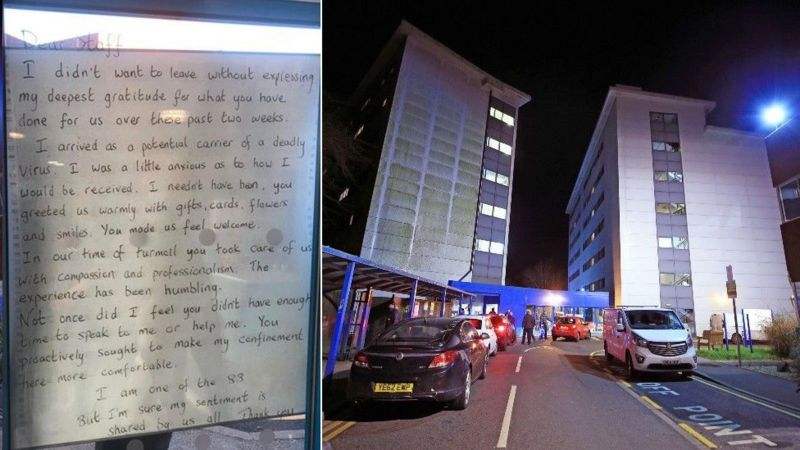 Dear Staff
I didn't want to leave without expressing
my deepest gratitude for what you have
done for us over these past two weeks.
I arrived as a potential carrier of a deadly
virus. I was a little anxious as to how I
would be received. I needn't have been, you
greeted us warmly with gifts, cards, flowers
and smiles. You made us feel welcome.
In our time of turmoil you took care of us
with compassion and professionalism. The
experience has been humbling.
Not once did I feel you didn't have enough
time to speak to me or help me. You
proactively sought to make my confinement
here more comfortable.
I am one of the 83
But I'm sure my sentiment is
shared by us all. Thank you
OFF POINT